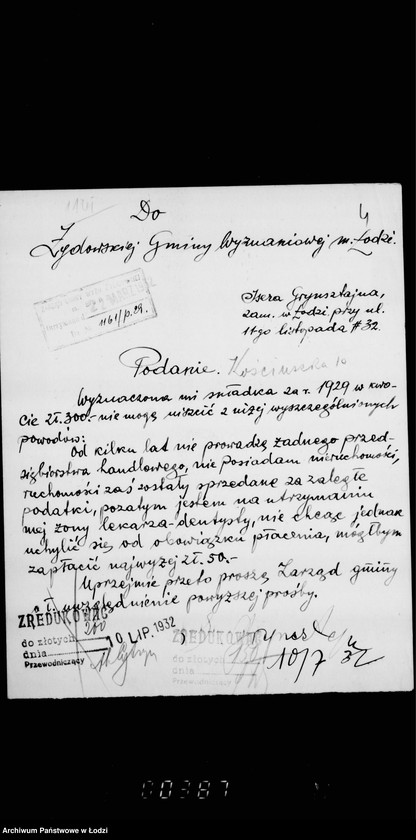 4
Do
Żydowskiej Gminy Wyznaniowej m. Łodzi.
1161/p.29.
Isera Grynsztajna,
zam. w Łodzi przy ul.
11-go listopada # 32.
Podanie. Kościuszki
Wyznaczona mi składka za r. 1929 w kwo-
cie zł. 300.- nie mogę uiścić z niżej wyszczególnionych
powodów:
Od kilku lat nie prowadzę żadnego przed-
siębiorstwa handlowego, nie posiadam nieruchomości,
ruchomości zaś zostały sprzedane za zaległe
podatki, pozatym jestem na utrzymaniu
mej żony lekarza-dentysty, nie chcąc jednak
uchylić się od obowiązku płacenia, mógłbym
zapłacić najwyżej zł. 50.-
Uprzejmie przeto proszę Zarząd gminy
o ł. uwzględnienie powyższej prośby.
ZREDUKOWAĆ
do złotych 200
dnia 10 LIP. 1932
Przewodniczący
ZREDUKOWAĆ
do złotych 150
dnia
Przewodniczący
10/7 32
00387
Archiwum Państwowe w Łodzi